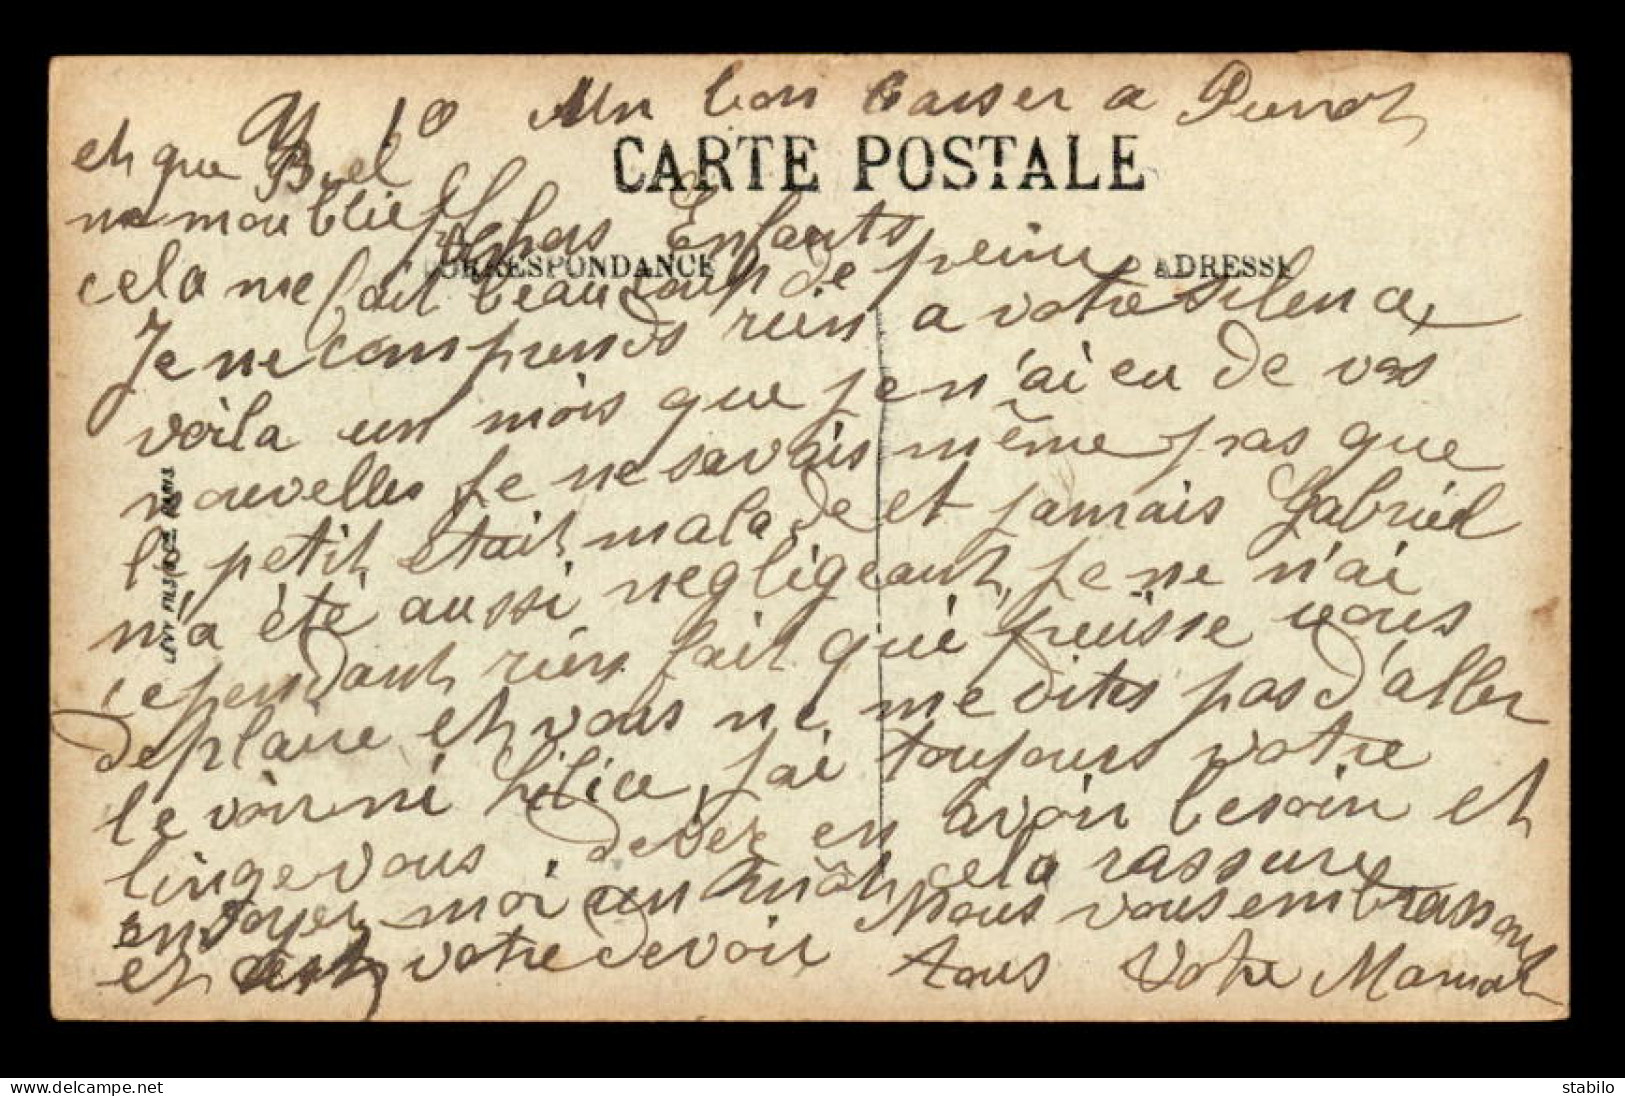 10 Un bon baiser a Pierrot
CARTE POSTALE
et que Biel
ne m'oublie pas
Chers Enfants
CORRESPONDANCE
ADRESSE
cela me fait beaucoup de peine
Je ne comprends rien a votre silence
voila un mois que je n'ai eu de vos
nouvelles Je ne savais même pas que
le petit était malade et jamais Gabriel
n'a été aussi negligeant, je ne n'ai
cependant rien fait qui puisse vous
deplaire et vous ne me dites pas d'aller
le voir ni j'ai toujours votre
linge vous devez en avoir besoin et
envoyer moi un mot cela rassure
et c'est votre devoir Nous vous embrassons
tous Votre Maman
LEVY FILS & Cie PARIS
stabilo
www.delcampe.net